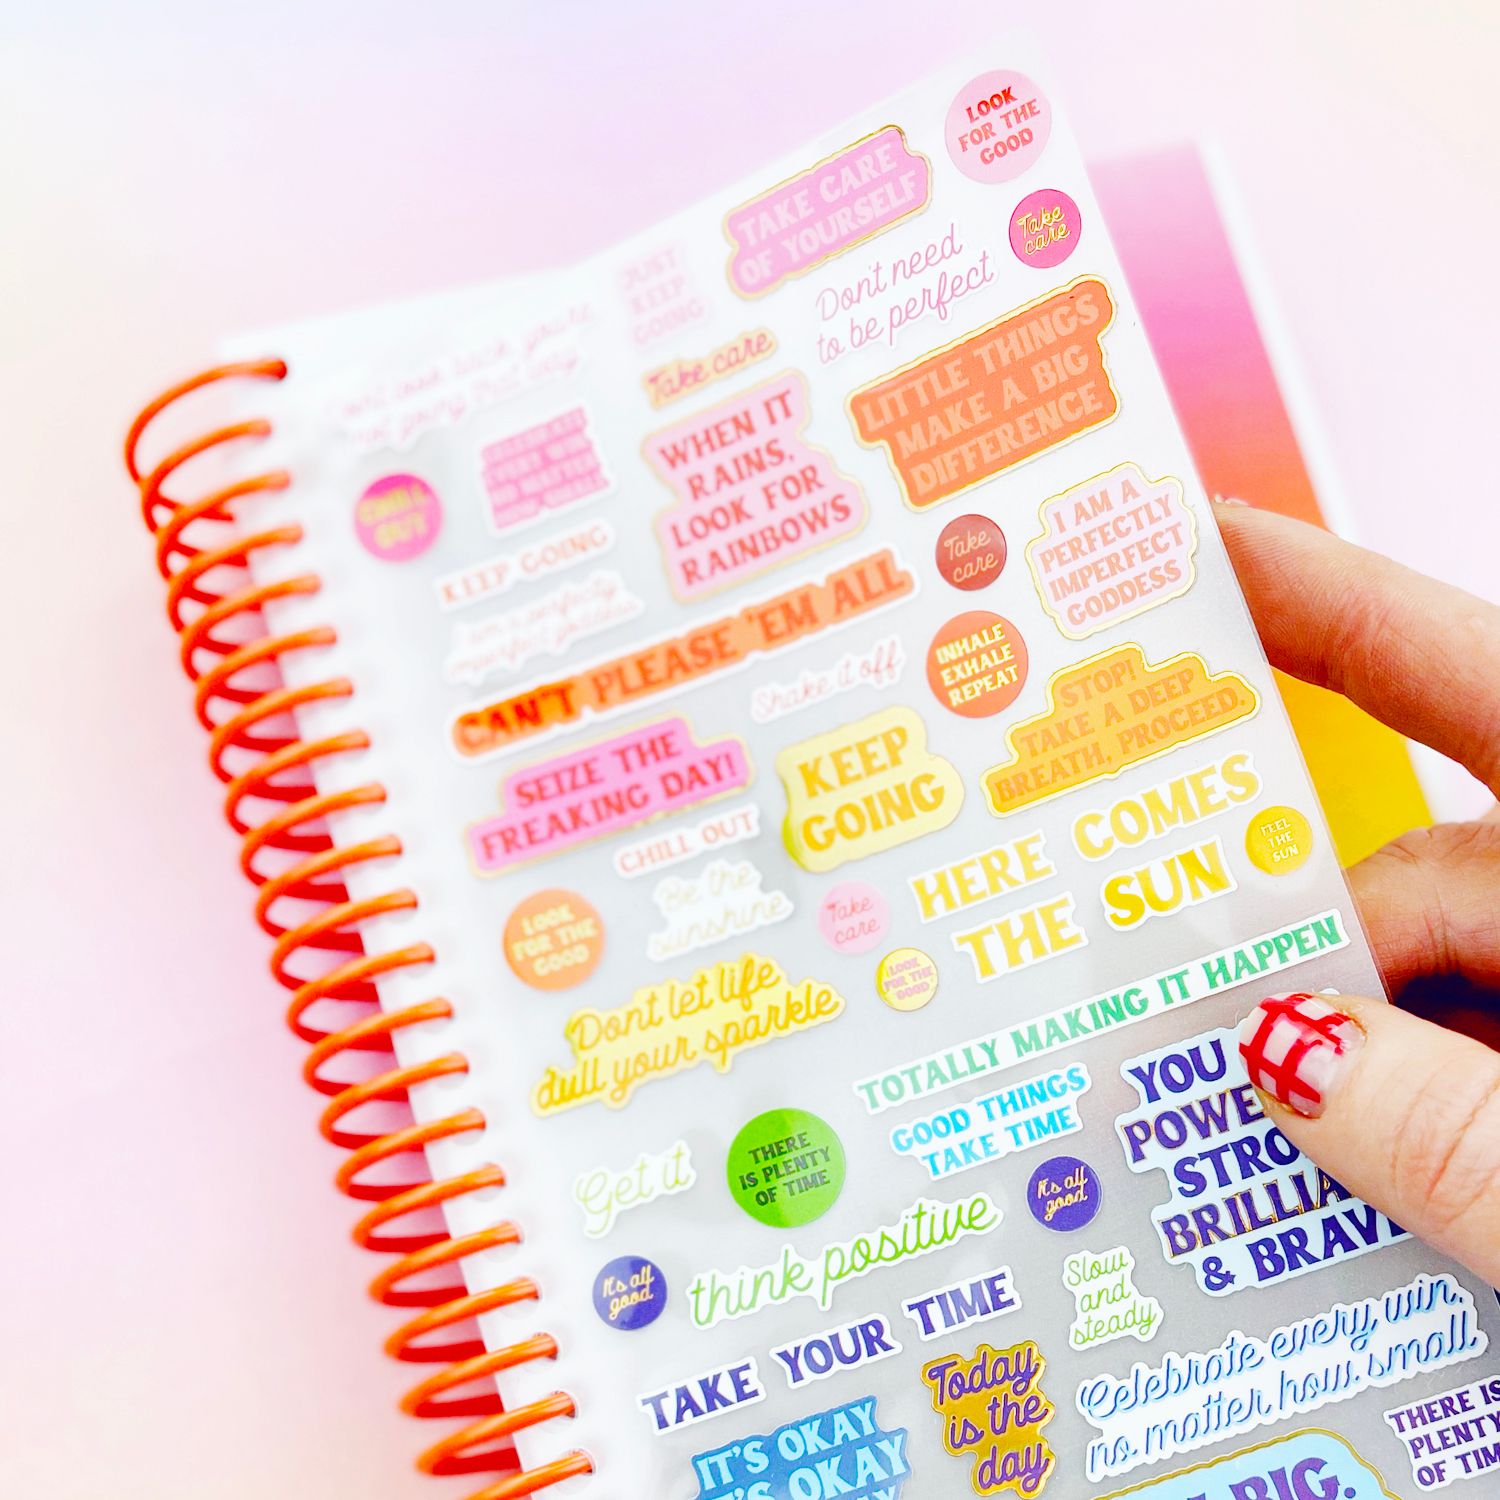 LOOK
FOR THE
GOOD
TAKE CARE
OF YOURSELF
Take
care
JUST
KEEP
GOING
Dont need
to be perfect
Take care
LITTLE THINGS
MAKE A BIG
DIFFERENCE
Don't look back you're
not going that way
CELEBRATE
EVERY WIN
NO MATTER
HOW SMALL
WHEN IT
RAINS,
LOOK FOR
RAINBOWS
CHILL
OUT
I AM A
PERFECTLY
IMPERFECT
GODDESS
KEEP GOING
Take
care
I am a perfectly
imperfect goddess
CAN'T PLEASE 'EM ALL
INHALE
EXHALE
REPEAT
Shake it off
STOP!
TAKE A DEEP
BREATH, PROCEED.
SEIZE THE
FREAKING DAY!
KEEP
GOING
HERE COMES
THE SUN
FEEL
THE
SUN
CHILL OUT
Be the
sunshine
Take
care
LOOK
FOR THE
GOOD
LOOK
FOR THE
GOOD
Dont let life
dull your sparkle
TOTALLY MAKING IT HAPPEN
GOOD THINGS
TAKE TIME
YOU
POWE
STRO
BRILLIA
& BRAVE
Get it
THERE
IS PLENTY
OF TIME
It's all
good
think positive
It's all
good
Slow
and
steady
TAKE YOUR TIME
Today
is the
day
Celebrate every win,
no matter how small
IT'S OKAY
IT'S OKAY
THERE IS
PLENTY
OF TIM
BIG.